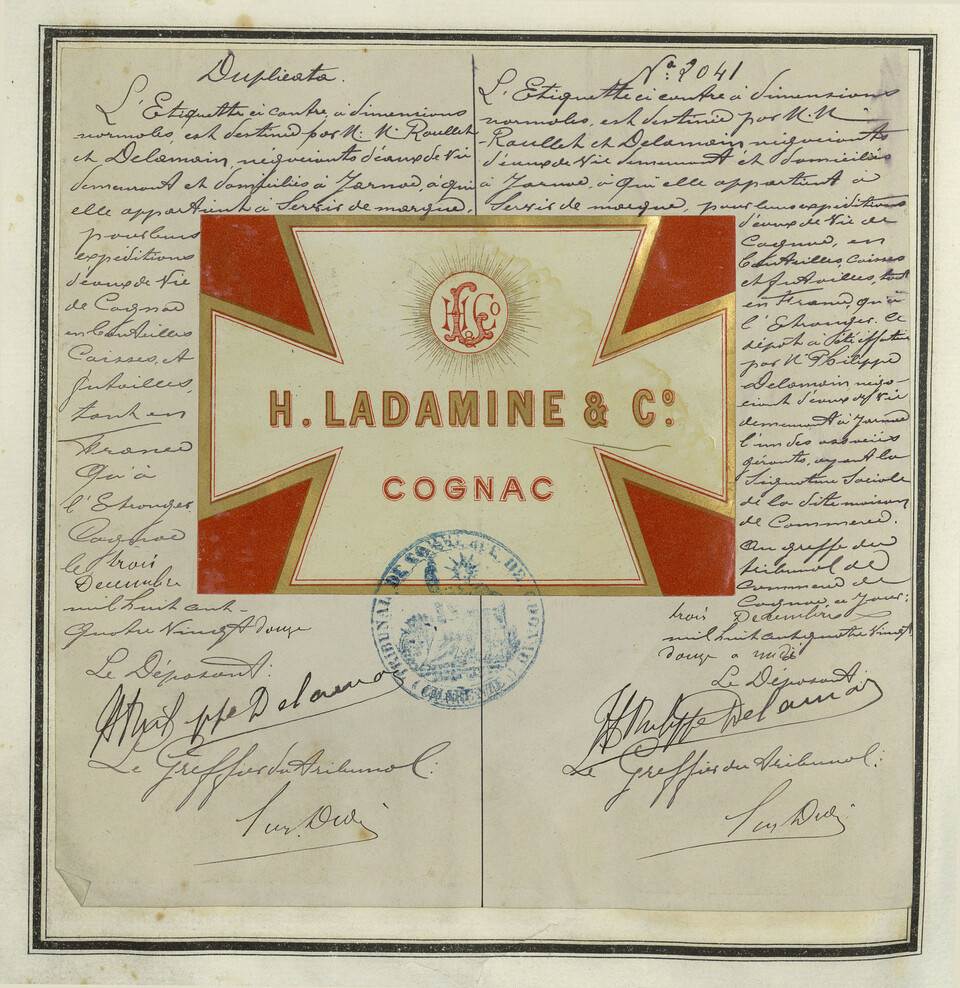 Duplicata.
L'Etiquette ci contre, à dimensions
normales, est destinée par M. M. Roullet
et Delamain, négociants d'eaux de Vie
demeurant et domiciliés à Jarnac, à qui
elle appartient à Servir de marque,
pour leurs
expéditions
d'eaux de Vie
de Cognac
en bouteilles
Caisses, et
futailles,
tant en
France
Qu'à
l'Etranger
Cognac
le trois
Decembre
mil huit cent
Quatre Vingt douze
Le Déposant:
Philippe Delamain
Le Greffier du tribunal:
Nº 2041
L'Etiquette ci contre à dimensions
normales, est destinée par M. M.
Roullet et Delamain négociants
d'eaux de Vie demeurant et domiciliés
à Jarnac, à qui elle appartient à
Servir de marque, pour leurs expéditions
d'eaux de Vie de
Cognac, en
bouteilles, caisses
et futailles, tant
en France, qu'à
l'Etranger. Ce
dépôt a été effectué
par M. Philippe
Delamain négo-
ciant d'eaux de Vie
demeurant à Jarnac
l'un des associés
gérants, ayant la
Signature Sociale
de la dite maison
de Commerce.
Au greffe du
tribunal de
Commerce de
Cognac, ce jour:
trois Decembre
mil huit cent quatre Vingt
douze à midi
Le Déposant
Philippe Delamain
Le Greffier du tribunal:
H L & Cº
H. LADAMINE & Cº
COGNAC
TRIBUNAL DE COMMERCE DE COGNAC
(CHARENTE)